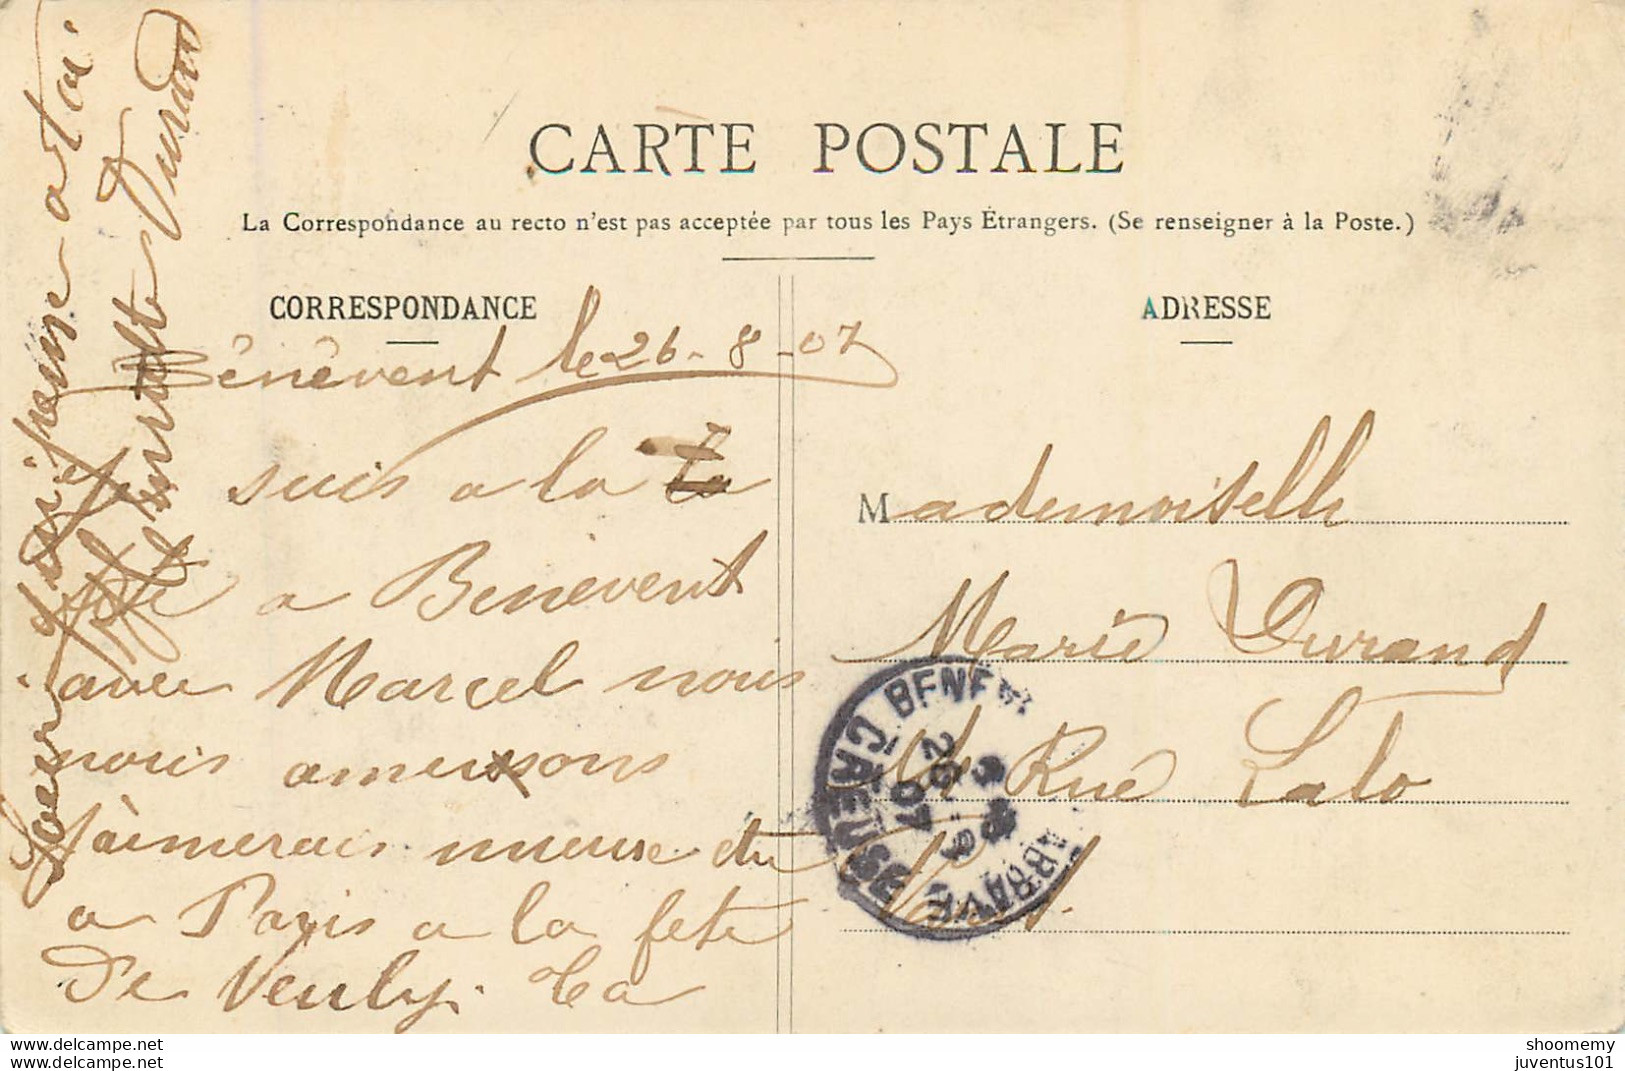 CARTE POSTALE
La Correspondance au recto n'est pas acceptée par tous les Pays Étrangers. (Se renseigner à la Poste.)
CORRESPONDANCE
ADRESSE
Bénévent le 26-8-07
Je suis a la
fete a Benevent
avec Marcel nous
nous amusons
j'aimerais mieux etre
a Paris a la fete
De Neuly. Ta
Soeur qui pense a toi.
Durand
Mademoiselle
Marie Durand
Rue Lalo
Paris.
BENEV ABBAYE
CREUSE
26 -8
07
www.delcampe.net
www.delcampe.net
shoomemy
juventus101